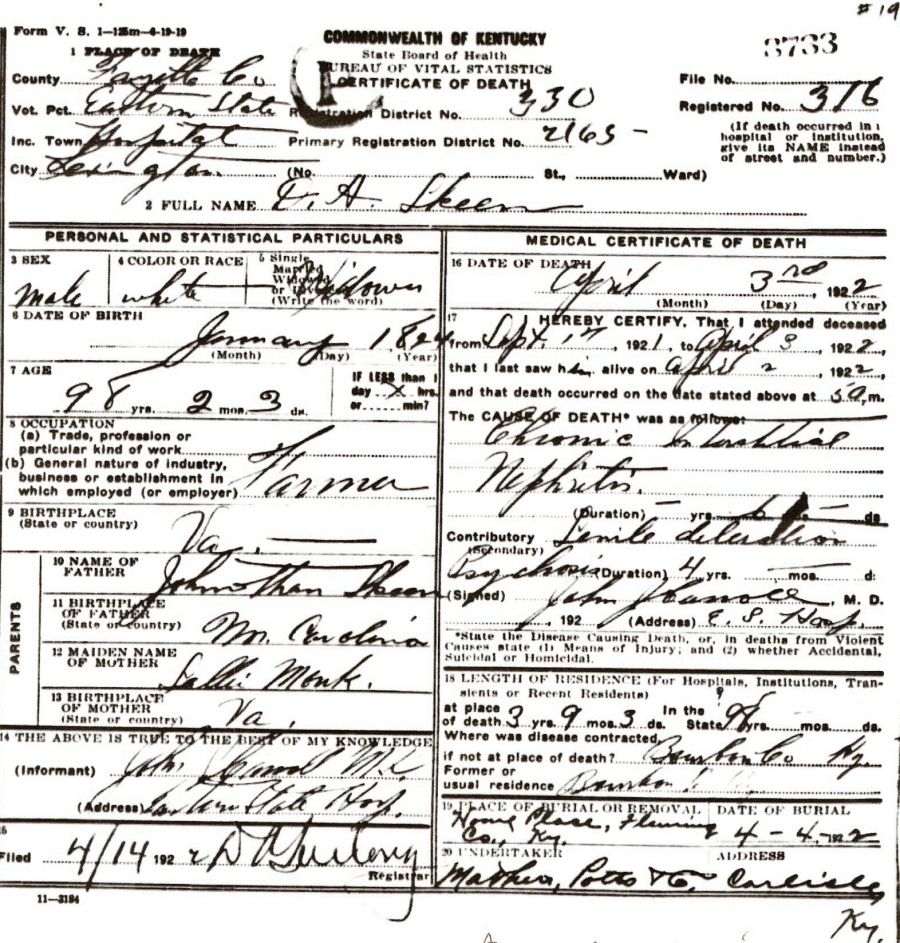 # 19
Form V. S. 1—125m—4-19-19
COMMONWEALTH OF KENTUCKY
State Board of Health
BUREAU OF VITAL STATISTICS
CERTIFICATE OF DEATH
1 PLACE OF DEATH
County Fayette Co
Vot. Pct. Eastern State
Inc. Town Hospital
City Lexington. (No. St., Ward)
Registration District No. 330
Primary Registration District No. 2165 -
File No. 8733
Registered No. 316
(If death occurred in a
hospital or institution,
give its NAME instead
of street and number.)
2 FULL NAME A. Skeen
PERSONAL AND STATISTICAL PARTICULARS
3 SEX
Male
4 COLOR OR RACE
white
5 Single
Married
Widowed
or Divorced
(Write the word)
6 DATE OF BIRTH
January 1824
(Month) (Day) (Year)
7 AGE
98 yrs. 2 mos. 3 ds.
IF LESS than 1
day X hrs.
or min?
8 OCCUPATION
(a) Trade, profession or
particular kind of work
(b) General nature of industry,
business or establishment in
which employed (or employer)
Farmer
9 BIRTHPLACE
(State or country)
Va.
PARENTS
10 NAME OF
FATHER
Johnothan Skeen
11 BIRTHPLACE
OF FATHER
(State or country)
Carolina
12 MAIDEN NAME
OF MOTHER
Sallie Monk.
13 BIRTHPLACE
OF MOTHER
(State or country)
Va.
14 THE ABOVE IS TRUE TO THE BEST OF MY KNOWLEDGE
(Informant) John
(Address) Eastern State Hosp.
15
Filed 4/14 192 2
Registrar
11—3184
MEDICAL CERTIFICATE OF DEATH
16 DATE OF DEATH
April 3rd, 1922
(Month) (Day) (Year)
17 I HEREBY CERTIFY, That I attended deceased
from Sept. 1st, 1921, to April 3, 1922,
that I last saw him alive on April 2, 1922,
and that death occurred on the date stated above at 5 a, m.
The CAUSE OF DEATH* was as follows:
Chronic Interstitial
Nephritis.
(Duration) — yrs. mos. — ds
Contributory Senile
(Secondary)
Psychosis (Duration) 4 yrs. mos. d:
(Signed) John, M. D.
, 192 (Address) E. S. Hosp.
*State the Disease Causing Death, or, in deaths from Violent
Causes state (1) Means of Injury; and (2) whether Accidental,
Suicidal or Homicidal.
18 LENGTH OF RESIDENCE (For Hospitals, Institutions, Tran-
sients or Recent Residents)
at place
of death 3 yrs. 9 mos. 3 ds. In the State 98 yrs. mos. ds.
Where was disease contracted,
if not at place of death? Bourbon Co Ky
Former or
usual residence Bourbon
19 PLACE OF BURIAL OR REMOVAL
Home Place, Fleming
Co., Ky.
DATE OF BURIAL
4-4-1922
20 UNDERTAKER
Mathers, Potts & Co.
ADDRESS
Carlisle
Ky.